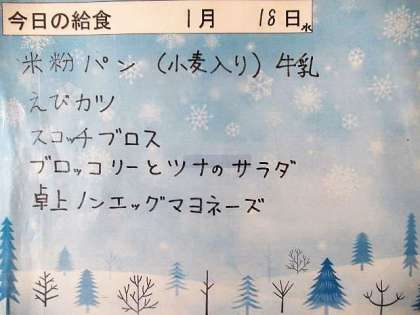 今日の給食 1月 18日水
米粉パン（小麦入り）牛乳
えびカツ
スコッチブロス
ブロッコリーとツナのサラダ
卓上ノンエッグマヨネーズ